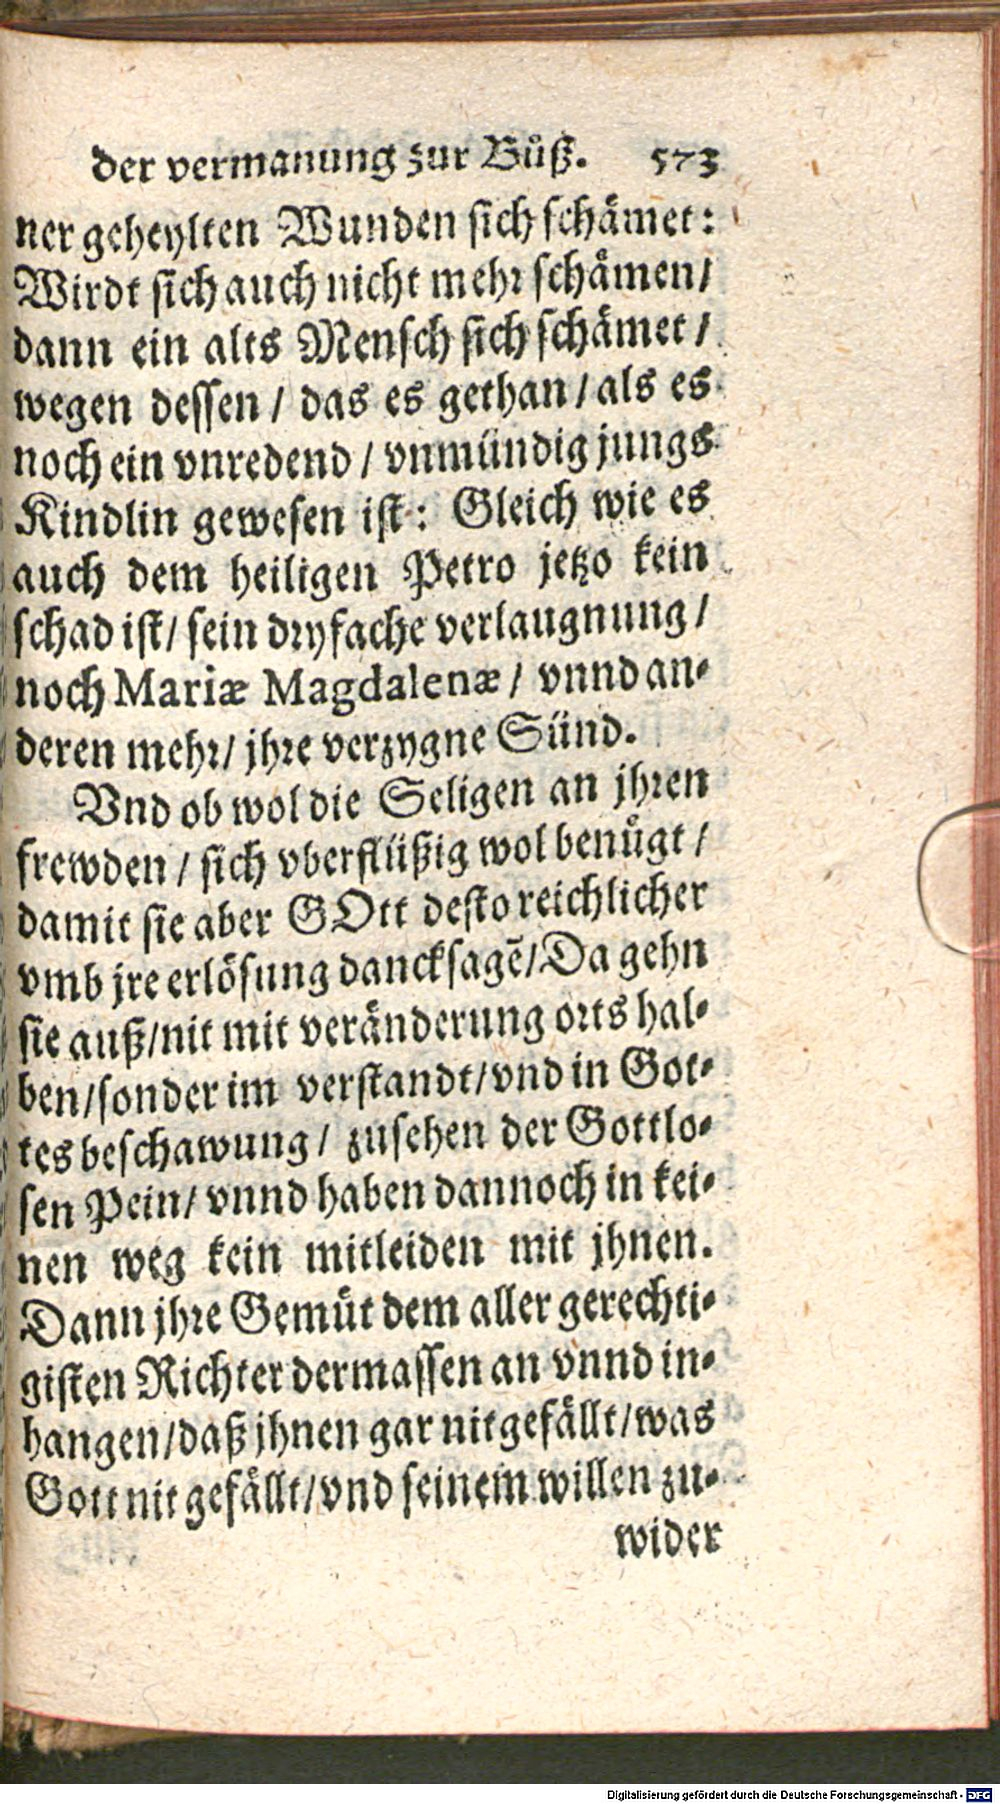 der vermanung zur Buͦß. 573
ner geheylten Wunden sich schaͤmet:
Wirdt sich auch nicht mehr schaͤmen/
dann ein alts Mensch sich schaͤmet/
wegen dessen/ das es gethan/ als es
noch ein vnredend/ vnmündig jungs
Kindlin gewesen ist: Gleich wie es
auch dem heiligen Petro jetzo kein
schad ist/ sein dryfache verlaugnung/
noch Mariæ Magdalenæ/ vnnd an-
deren mehr/ jhre verzygne Sünd.
Vnd ob wol die Seligen an jhren
frewden/ sich vberflüßig wol benuͤgt/
damit sie aber GOtt desto reichlicher
vmb jre erlösung dancksagē/ Da gehn
sie auß/ nit mit veränderung orts hal-
ben/ sonder im verstandt/ vnd in Got-
tes beschawung/ zusehen der Gottlo-
sen Pein/ vnnd haben dannoch in kei-
nen weg kein mitleiden mit jhnen.
Dann jhre Gemuͤt dem aller gerechti-
gisten Richter dermassen an vnnd in-
hangen/ daß jhnen gar nit gefällt/ was
Gott nit gefällt/ vnd seinem willen zu-
wider
Digitalisierung gefördert durch die Deutsche Forschungsgemeinschaft - DFG